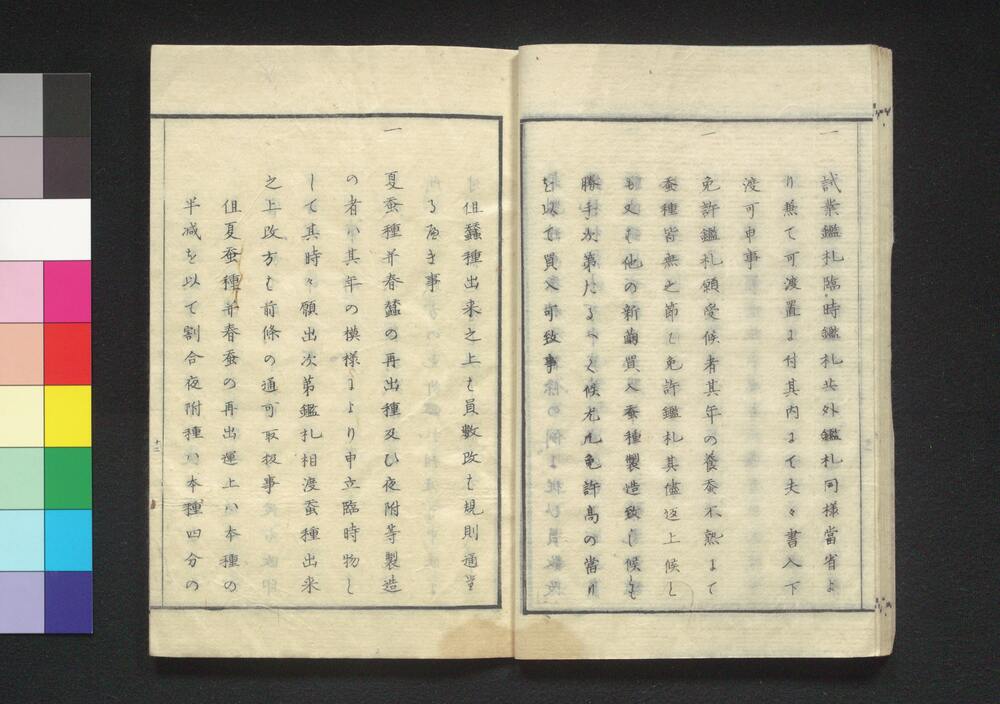 一 試業鑑札臨時鑑札共外鑑札同様當省よ
り兼て可渡置に付其内にて夫々書入下
渡可申事
一 免許鑑札願受候者其年の養蚕不熟にて
蚕種皆無之節も免許鑑札其儘返上候とも
又は他の新繭買入蚕種製造致し候とも
勝手次第たるへく候尤免許高の當り
を以て買入可致事
但蠶種出来之上も員數改も規則通
る可き事
一 夏蚕種并春蠶の再出種及ひ夜附等製造
の者ハ其年の模様により申立臨時物と
して其時々願出次第鑑札相渡蚕種出来
之上改方も前條の通可取扱事
但夏蚕種并春蚕の再出運上ハ本種の
半減を以て割合夜附種ハ本種四分の
十二